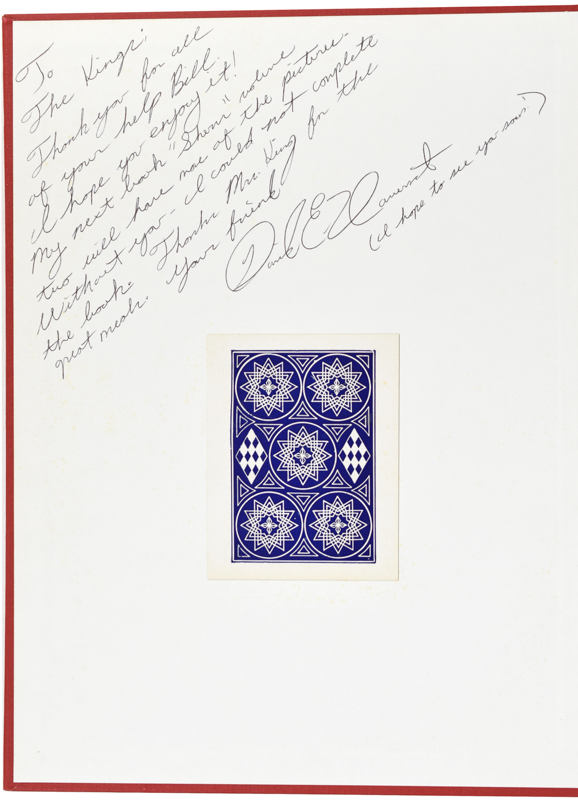 To
The Kings;
Thank you for all
of your help Bill.
I hope you enjoy it!
My next book "Sherms" volume
two will have more of the pictures.
Without you - I could not complete
the book. Thanks Mrs. King for the
great meals. Your friend
David E. Haversat
(I hope to see ya soon!)